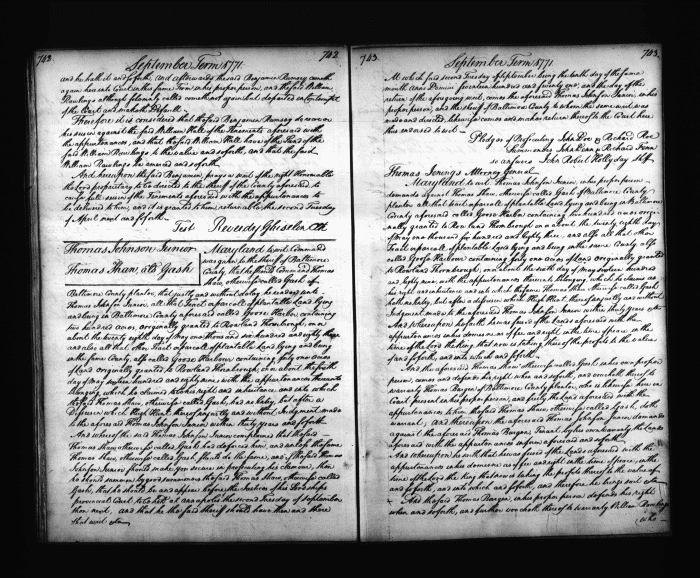 742.
September Term 1771.
742
and he hath it and so forth, and afterwards the said Benjamin Ramsey cometh
again here into Court in this same Term in his proper person, and the said William
Rawlings although solemnly called cometh not again but departed in contempt
of the Court and maketh Default
Therefore it is considered that the said Benjamin Ramsey do recover
his seisin against the said William Hall of the Tenements aforesaid with
the appurtenances, and that the said William Hall have of the Land of the
said William Rawlings to the value and so forth, and that the said
William Rawlings in mercy and so forth.
And hereupon the said Benjamin prays a writ of the right Honorable
the Lord proprietary to be directed to the sheriff of the County aforesaid to
cause full seisin of the Tenements aforesaid with the appurtenances to
be delivered to him, and it is granted to him returnable the second Tuesday
of April next and so forth.
Test Reverdy Ghiselin Clk
Thomas Johnson Junior
Thomas Shaw, als Gash
Maryland to wit Command
was given to the sheriff of Baltimore
County that he should command Thomas
Shaw, otherwise called Gash of
Baltimore County planter, that justly and without delay he render unto
Thomas Johnson Junior, all that Tract or parcel of plantable Land lying
and being in Baltimore County aforesaid called Goose Harbour containing
two hundred acres, originally granted to Rowland Thornborough, on or
about the twenty eighth day of may one thousand six hundred and eighty three
and also all that other Tract or parcel of plantable Land lying and being
in the same County, also called Goose Harbour containing forty one acres
of Land originally granted to Rowland Thornborough, on or about the sixth
day of may sixteen hundred and eighty nine with the appurtenances thereunto
belonging, which he claimed to be his right and inheritance and into which
the said Thomas Shaw, otherwise called Gash, had no Entry, but after a
Disseisin which Hugh Hunt thereof unjustly and without Judgment made
to the aforesaid Thomas Johnson Junior within thirty years and so forth.
And whereof the said Thomas Johnson Junior complained that the said
Thomas Shaw otherwise called Gash, had deforced him, and unless the same
Thomas Shaw, otherwise called Gash should so do the same, and if the said Thomas
Johnson Junior should make you secure in prosecuting his clamour, then
he should summon by good summoners the said Thomas Shaw, otherwise called
Gash, that he should be and appear before the Justices of his Lordships
provincial Court, to be held at annapolis the second Tuesday of September
then next, and that he the said sheriff should have then and there
that writ
743
September Term 1771
743
At which said second Tuesday of September being the tenth day of the same
month Anno Domini seventeen hundred and seventy one, and the day of the
return of the aforegoing writ, comes the aforesaid Thomas Johnson Junior in his
proper person, and the sheriff of Baltimore County to whom the same writ was
and directed, likewise comes and makes return thereof to the Court here
thus endorsed to wit
Pledges of Prosecuting John Doe & Richard Roe
Summoners John Denn & Richard Fenn
so answers John Robert Hollyday Shff
Thomas Jenings Attorney General
Maryland to wit Thomas Johnson Junior, in his proper person
demands against Thomas Shaw otherwise called Gash of Baltimore County
planter all that tract or parcel of plantable Land lying and being in Baltimore
County aforesaid called Goose Harbour containing two hundred acres origi-
nally granted to Rowland Thornborough on or about the twenty eighth day
of may one thousand six hundred and eighty three, and also all that other
tract or parcel of plantable Land lying and being in the same County also
called Goose Harbour containing forty one acres of Land originally granted
to Rowland Thornborough, on or about the sixth day of may sixteen hundred
and eighty nine, with the appurtenances thereunto belonging, which he claims as
his right and inheritance and into which the same Thomas Shaw otherwise called Gash
hath no Entry, but after a disseisin which Hugh Hunt thereof unjustly and without
Judgment made to the aforesaid Thomas Johnson Junior within thirty years
And whereupon he saith he was seised of the Lands aforesaid with the
appurtenances in his demesne as of fee and right in the time of peace in the
time of the Lord the King that now is taking thereof the profits to the value
and so forth, and into which and so forth.
And the aforesaid Thomas Shaw otherwise called Gash in his own proper
person, comes and defends his right when and so forth, and voucheth thereof to
warranty Thomas Burgan of Baltimore County planter, who is likewise here in
Court present in his proper person, and freely the Land aforesaid with the
appurtenances to him the said Thomas Shaw, otherwise called Gash, doth
warrant, and thereupon the aforesaid Thomas Johnson Junior demands
against the aforesaid Thomas Burgan Tenant by his own warranty the Lands
aforesaid with the appurtenances in form aforesaid and so forth.
And whereupon he saith that he was seised of the Lands aforesaid with the
appurtenances in his demesne as of fee and right in the time of peace, in the
time of the Lord the King that now is taking the profits thereof to the value
and so forth, and into which and so forth, and therefore he brings suit
And the said Thomas Burgan, in his proper person defends his right
when and so forth, and further voucheth thereof to warranty William Rawlings
who